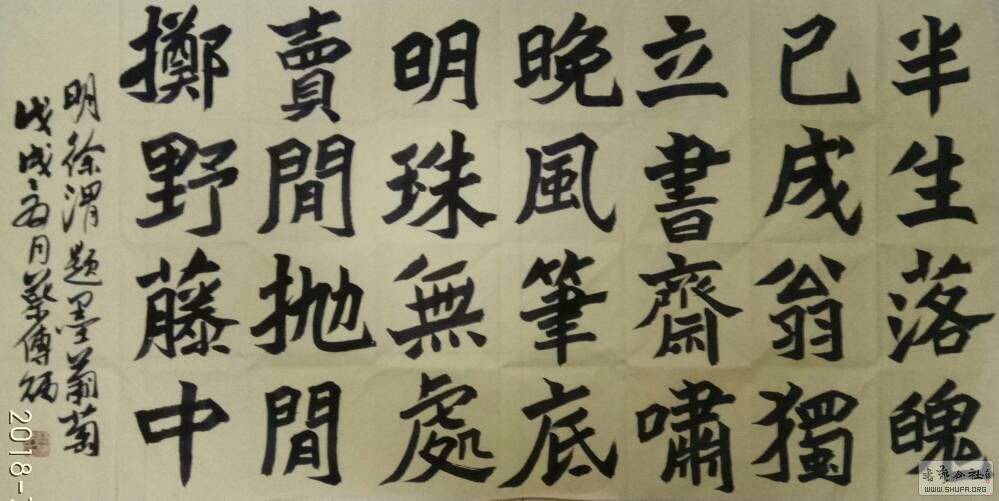 半生落魄
已成翁獨
立書齋嘯
晚風筆底
明珠無處
賣間抛間
擲野藤中
明徐渭題墨葡萄
戊戌
月蔡傅炳
2018-
WWW.SHUFA.ORG